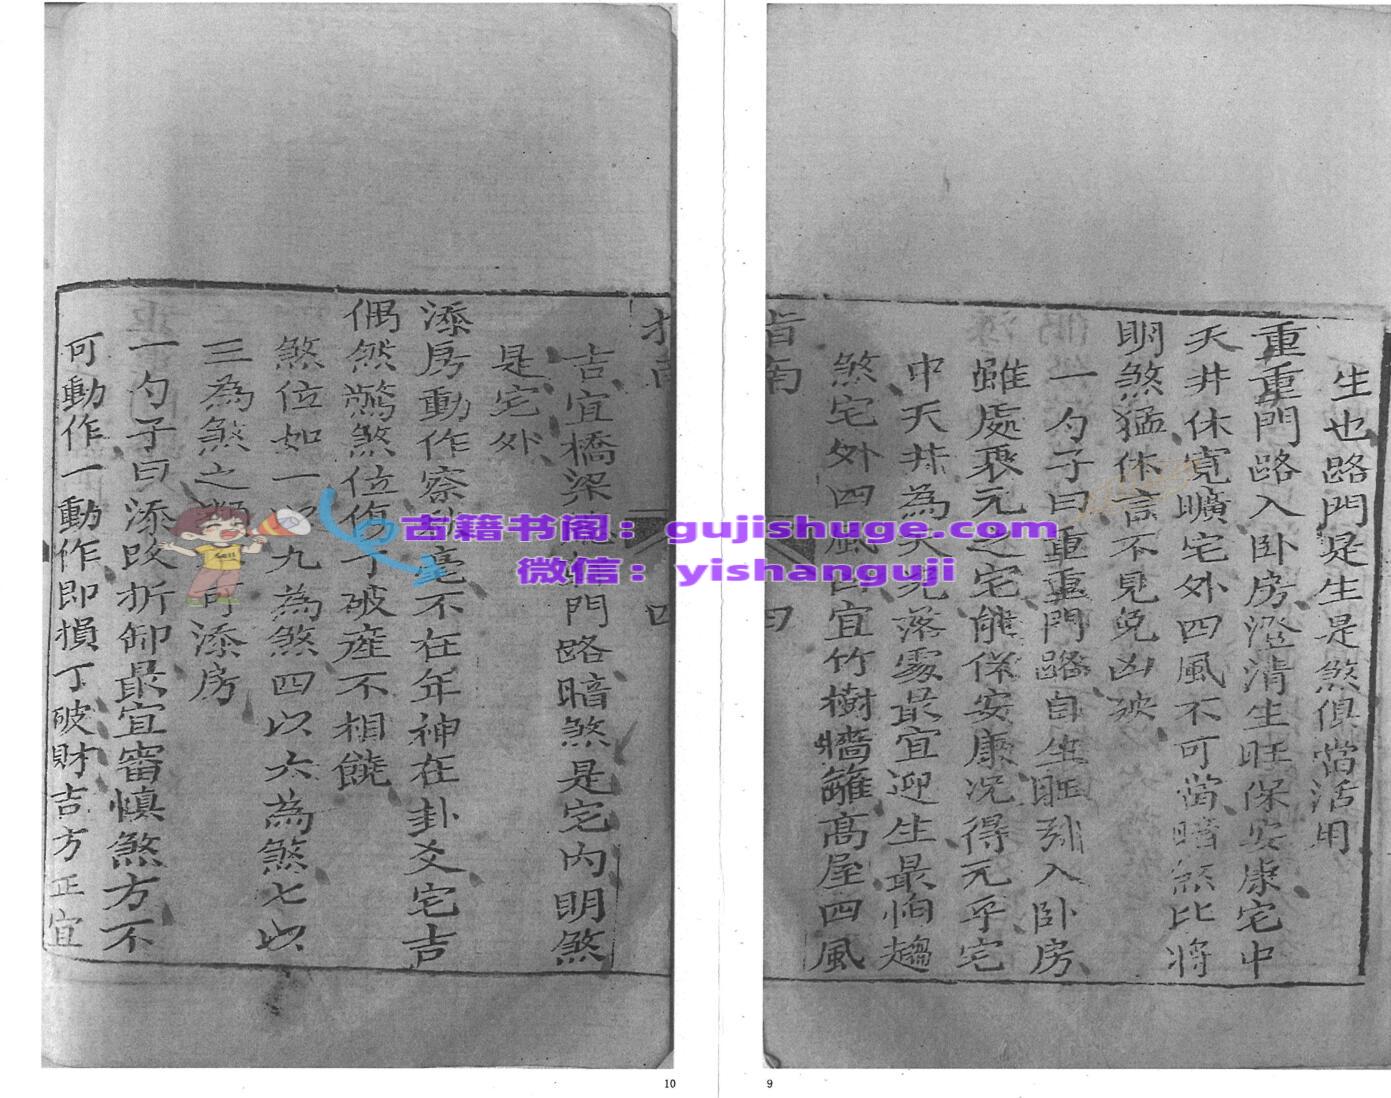 生也路門是生是煞俱當活用
重重門路入卧房澄清生旺保安康宅中
天井休寬曠宅外四風不可當暗煞比將
明煞猛休言不見免凶殃
一勺子曰重重門路自生旺引入卧房
雖處衰元之宅能保安康况得元乎宅
中天井為天光落處最宜迎生最怕趨
煞宅外四風凹宜竹樹牆籬高屋四風
指南
四
吉宜橋梁門路暗煞是宅內明煞
是宅外
添房動作察秋毫不在年神在卦爻宅吉
偶然驚煞位傷丁破産不相饒
煞位如一以九為煞四以六為煞七以
三為煞之類可添房
一勺子曰添改折卸最宜審慎煞方不
可動作一動作即損丁破財吉方正宜
古籍书阁：gujishuge.com
微信：yishanguji
9
10